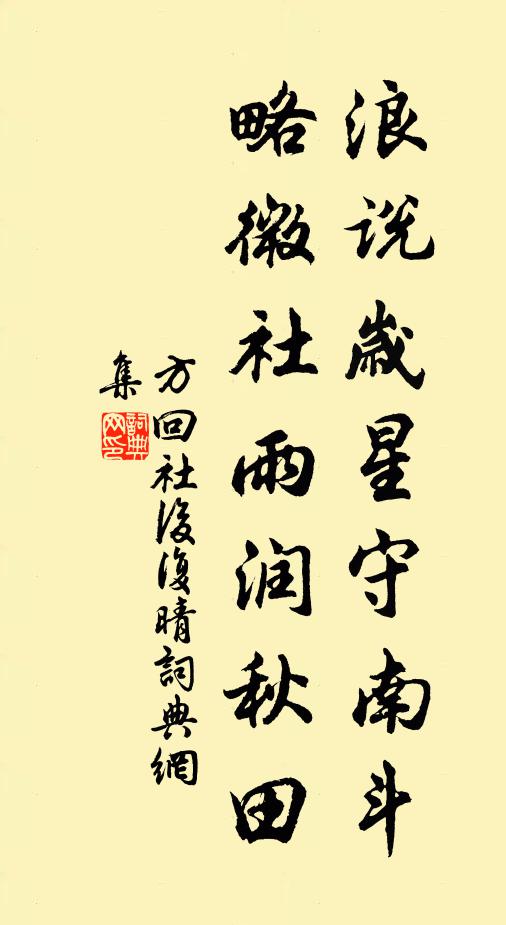 浪说岁星守南斗
略微社雨润秋田
方回社后复晴詞典網
集
詞典网印